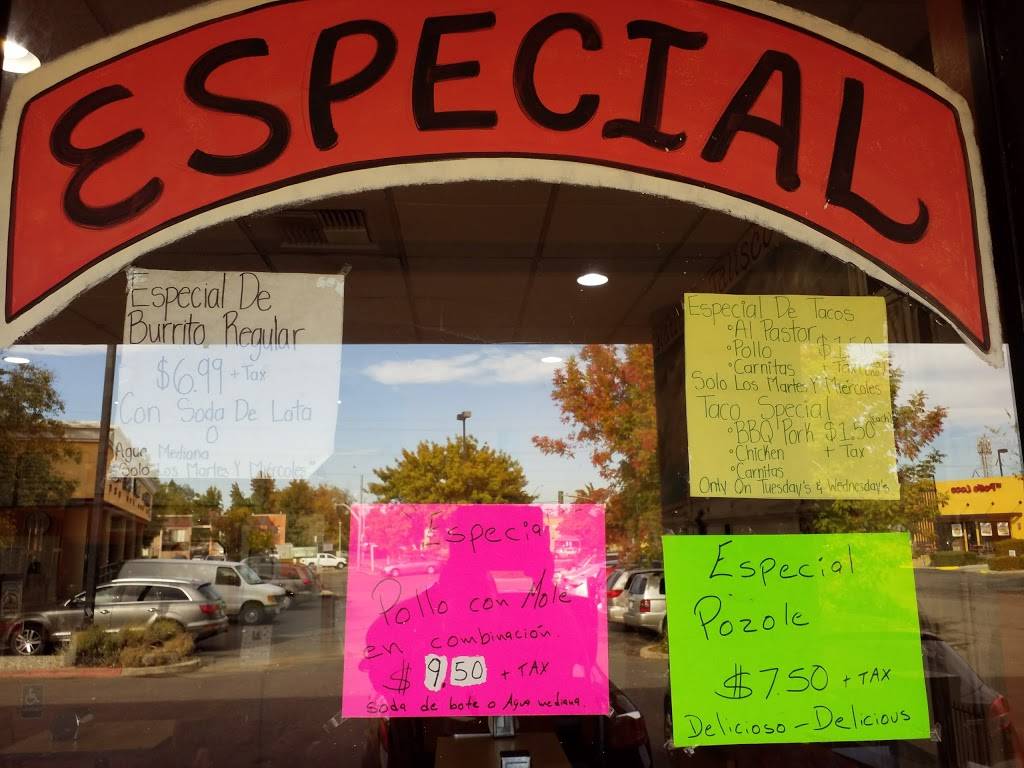 ESPECIAL
Especial De
Burrito Regular
$6.99 + Tax
Con Soda De Lata
O
Agua Mediana
"Solo Los Martes Y Miércoles"
Especial De Tacos
°Al Pastor
°Pollo $1.50
°Carnitas Tax
Solo Los Martes Y Miércoles
Taco Special
°BBQ Pork $1.50 each
°Chicken + Tax
°Carnitas
Only On Tuesday's & Wednesday's
Especial
Pollo con Mole
en combinación.
$ 9.50 + TAX
soda de bote o Agua mediana.
Especial
Pozole
$7.50 + TAX
Delicioso - Delicious